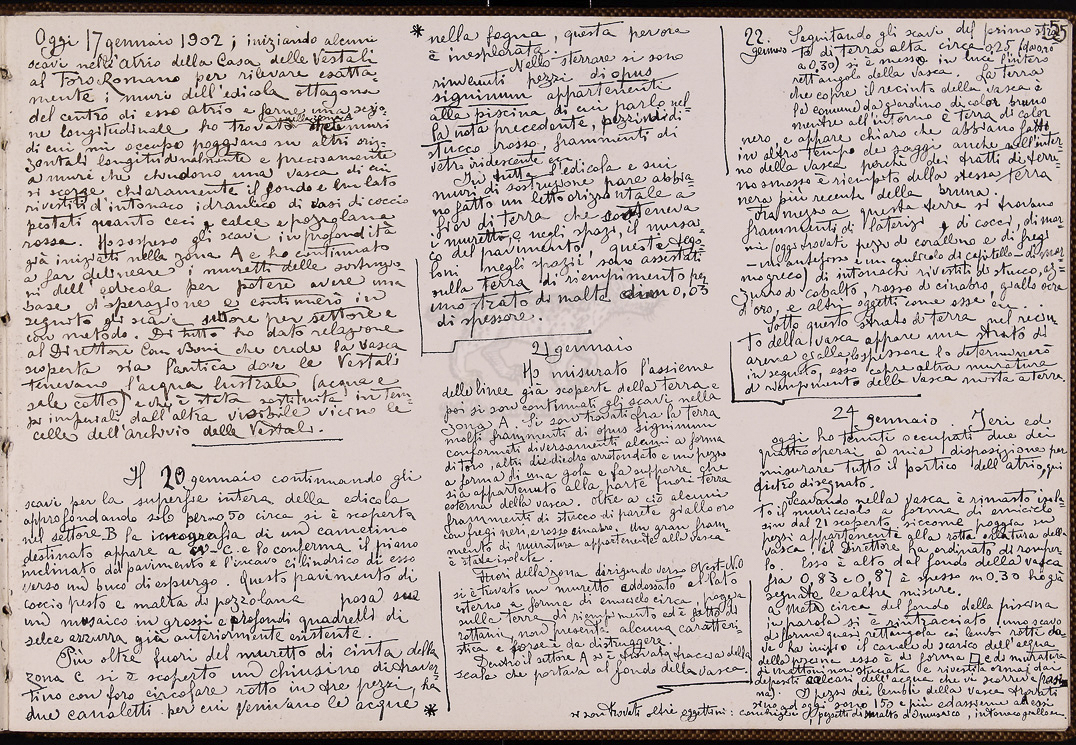 55
Oggi 17 gennaio 1902; iniziando alcuni
scavi nell'atrio della Casa delle Vestali
al Foro Romano per rilevare esatta-
mente i muri dell'edicola ottagona
del centro di esso atrio e farne una sezio-
ne longitudinale ho trovato muri
di cui mi occupo poggiano su altri oriz-
zontali longitudinalmente e precisamente
a muri che chiudono una vasca di cui
si scorge chiaramente il fondo e un lato
rivestiti d'intonaco idraulico di vasi di coccio
pestati quanto ceci e calce e pozzolana
rossa. Ho sospeso gli scavi in profondità
già iniziati nella zona A e ho continuato
a far delineare i muretti delle sostruzio-
ni dell'edicola per potere avere una
base d'operazione e continuerò in
seguito gli scavi settore per settore e
con metodo. Di tutto ho dato relazione
al Direttore Com Boni che crede la vasca
scoperta sia l'antica dove le Vestali
tenevano l'acqua lustrale (acqua e
sale cotto) e che è stata sostituita in tem-
pi imperiali dall'altra visibile vicino le
celle dell'Archivio delle Vestali.
Il 20 gennaio continuando gli
scavi per la superfice intera della edicola
approfondando solo per m 0 50 circa si è scoperta
nel settore B la icnografia di un camerino
destinato appare a W. C. e lo conferma il piano
inclinato da pavimento e l'incavo cilindrico di esso
verso un buco di espurgo. Questo pavimento di
coccio pesto e malta di pozzolana posa su
un mosaico in grossi e profondi quadrelli di
selce azzurra già anteriormente esistente.
Più oltre fuori del muretto di cinta della
zona C si è scoperto un chiusino di traver-
tino con foro circolare rotto in tre pezzi, ha
due canaletti per cui venivano le acque *
* nella fogna, questa per ora
è inesplorata.
Nello sterrare si sono
rinvenuti pezzi di opus
signinum appartenenti
alla piscina di cui parlo nel-
la nota precedente, pezzi di
stucco rosso, frammenti di
vetro iridescente ecc
In tutta l'edicola e sui
muri di sostruzione pare abbia-
no fatto un letto orizzontale a
fior di terra che sosteneva
i muretti, e negli spazi, il mosai-
co del pavimento, queste tego-
loni negli spazii, sono assestati
sulla terra di riempimento per
uno strato di malta di m 0,03
di spessore.
21 gennaio
Ho misurato l'assieme
delle linee già scoperte della terra e
poi si son continuati gli scavi nella
zona A. Si son trovati fra la terra
molti frammenti di opus signinum
conformati diversamente alcuni a forma
di toro, altri di diedro arrotondato e un pezzo
a forma di una gola e fa supporre che
sia appartenuto alla parte fuori terra
esterna della vasca. Oltre a ciò alcuni
frammenti di stucco di parete giallo oro
con fregi neri, e rosso cinabro. Un gran fram-
mento di muratura appartenente alla vasca
è stato isolato.
Fuori della zona dirigendo verso Ovest N.O
si è trovato un muretto addossato al lato
esterno a forma di emiciclo circa, poggia
sulla terra di riempimento ed è fatto di
rottami, non presenta alcuna caratteri-
stica e forse è da distruggere.
Dentro il settore A si è trovata traccia della
scala che portava al fondo della vasca
22. gennaio Seguitando gli scavi del primo stra-
to di terra alta circa 0,25 (da 0,20
a 0,30) si è messo in luce l'intero
rettangolo della vasca. La terra
che copre il recinto della vasca è
la comune da giardino di color bruno
mentre all'interno è terra di color
nero e appare chiaro che abbiano fatto
in altro tempo dei saggi anche nell'inter-
no della vasca perchè dei tratti di terre-
no smosso è riempito della stessa terra
nera più recente della bruna.
Frammezzo a questa terra si trovano
frammenti di laterizi, di cocci, di mar-
mi (oggi trovati pezzo di corallino e di fregi
– una antefissa e un caulicolo di capitello – di mar-
mo greco) di intonachi rivestiti di stucco, az-
zurro di cobalto, rosso di cinabro, giallo ocre
d'oro, e altri oggetti come esse ecc.
Sotto questo strato di terra nel recin-
to della vasca appare uno strato di
arena gialla, lo spessore lo determinerò
in seguito, esso copre altra muratura
di riempimento della vasca mista a terra.
24 gennaio Ieri ed
oggi ho tenute occupati due dei
quattro operai a mia disposizione per
misurare tutto il portico dell'atrio, qui
dietro disegnato.
Scavando nella vasca è rimasto isola-
to il muricciolo a forma di emiciclo
sin dal 21 scoperto, siccome poggia su
pezzi appartenente alla rotta della
vasca, il Direttore ha ordinato di romper-
lo. Esso è alto dal fondo della vasca
fra 0,83 e 0,87 è spesso m 0.30 ho già
segnato le altre misure.
a metà circa del fondo della piscina
in parola si è rintracciato uno scavo
di forma quasi rettangola coi lembi rotti do-
ve ha inizio il canale di scarico dell'acqua
della piscina esso è di forma e di muratura
di mattoni non stuccata le rivestite ormai dai
depositi calcari dell'acqua che vi scorreva
ma).
I pezzi dei lembi della vasca trovati
sino ad oggi sono 150 e più ed assieme ad essi
si son trovati oltre oggettini: conchiglie, pezzetti di smalto d'musaico, intonaco giallo ecc